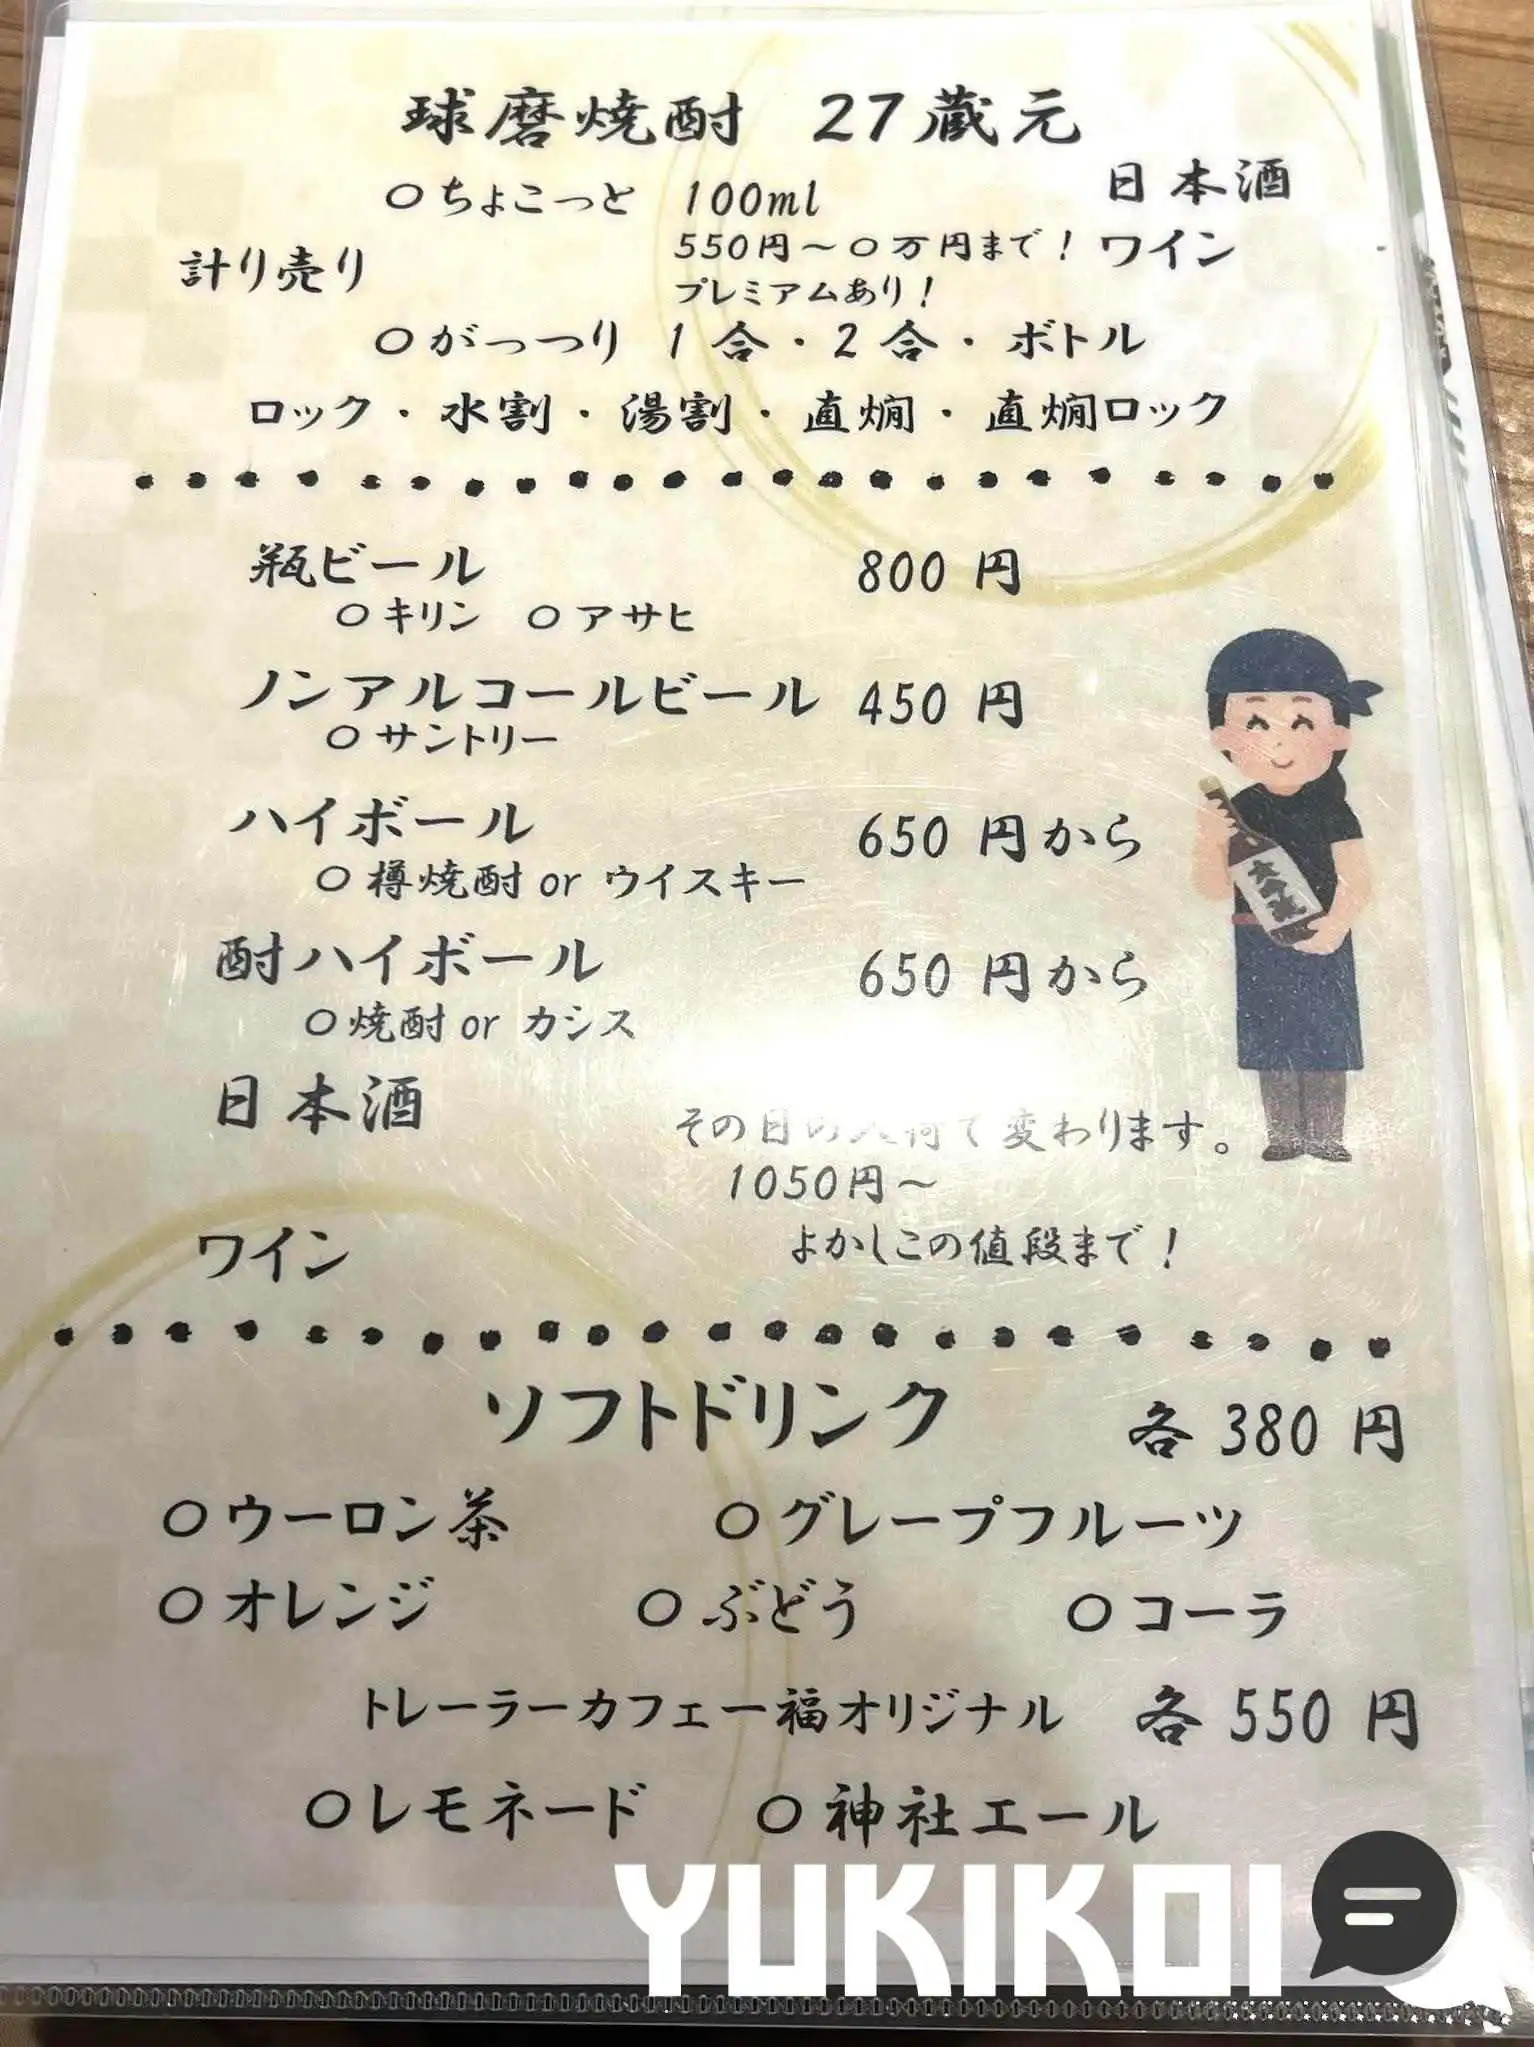 球磨焼酎 27蔵元
○ちょこっと 100ml 日本酒
計り売り 550円～○万円まで！ ワイン
プレミアムあり！
○がっつり 1合・2合・ボトル
ロック・水割・湯割・直燗・直燗ロック
瓶ビール 800円
○キリン ○アサヒ
ノンアルコールビール 450円
○サントリー
ハイボール 650円から
○樽焼酎or ウイスキー
酎ハイボール 650円から
○焼酎or カシス
日本酒 その日の入荷で変わります。
1050円～
ワイン よかしこの値段まで！
ソフトドリンク 各380円
○ウーロン茶 ○グレープフルーツ
○オレンジ ○ぶどう ○コーラ
トレーラーカフェ一福オリジナル 各550円
○レモネード ○神社エール
YUKIKOI